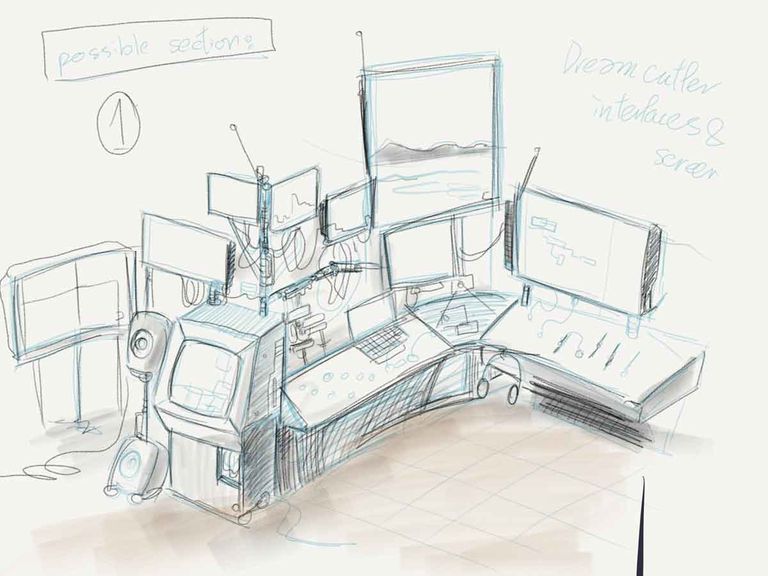 possible section:
1
Dream cutter
interfaces &
screen